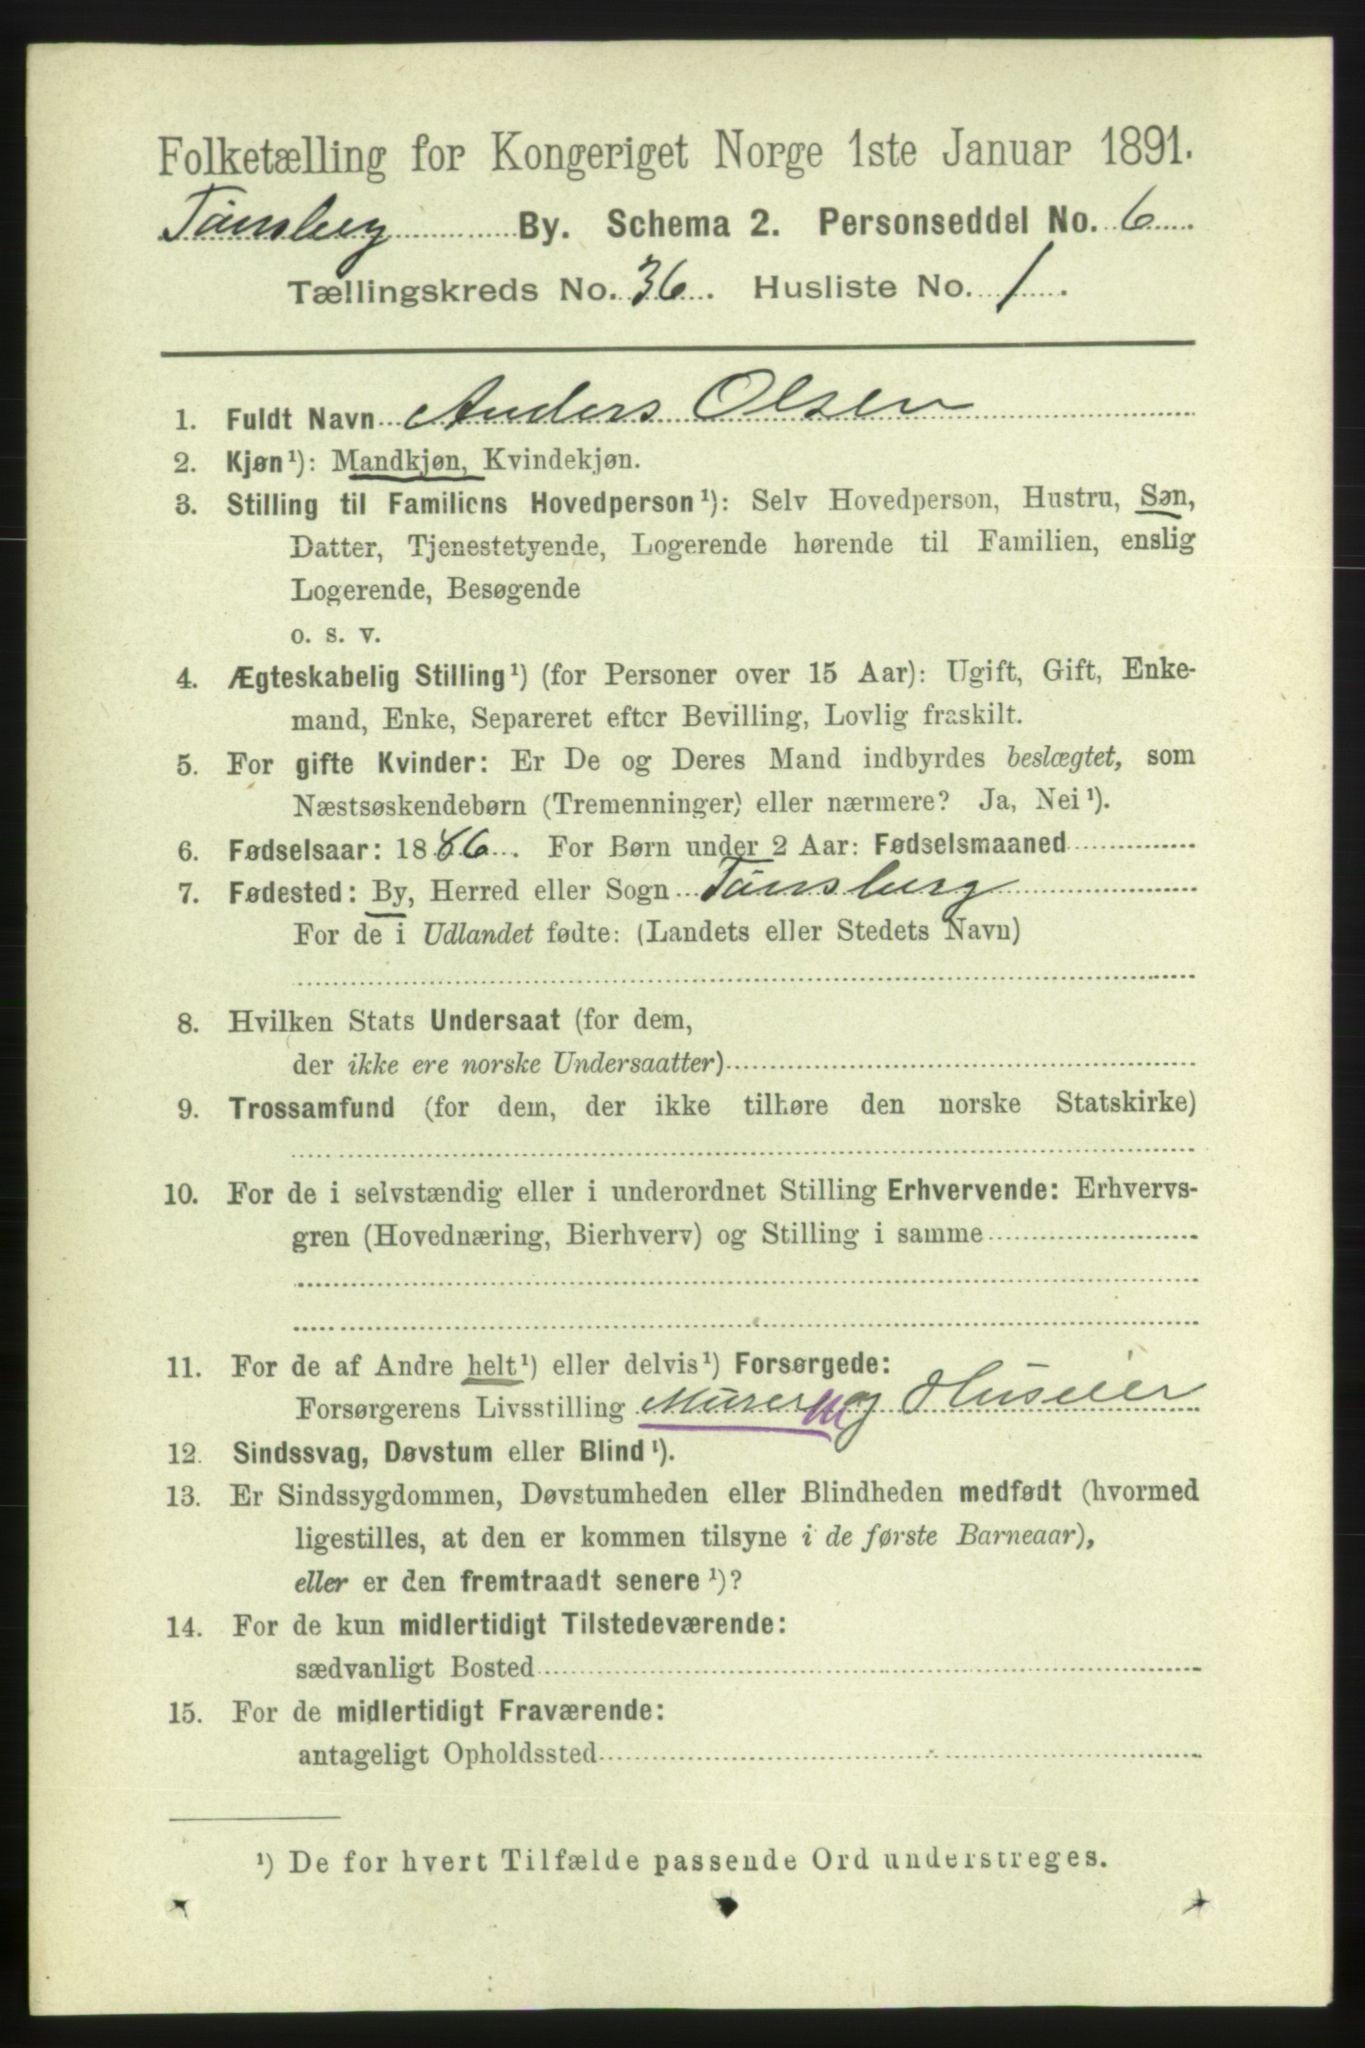 Folketælling for Kongeriget Norge 1ste Januar 1891.
Tönsberg By. Schema 2. Personseddel No. 6
Tællingskreds No. 36. Husliste No. 1.
1. Fuldt Navn Anders Olsen
2. Kjøn¹): Mandkjøn, Kvindekjøn.
3. Stilling til Familiens Hovedperson¹): Selv Hovedperson, Hustru, Søn,
Datter, Tjenestetyende, Logerende hørende til Familien, enslig
Logerende, Besøgende
o. s. v.
4. Ægteskabelig Stilling¹) (for Personer over 15 Aar): Ugift, Gift, Enke-
mand, Enke, Separeret efter Bevilling, Lovlig fraskilt.
5. For gifte Kvinder: Er De og Deres Mand indbyrdes beslægtet, som
Næstsøskendebørn (Tremenninger) eller nærmere? Ja, Nei¹).
6. Fødselsaar: 1886. For Børn under 2 Aar: Fødselsmaaned
7. Fødested: By, Herred eller Sogn Tönsberg
For de i Udlandet fødte: (Landets eller Stedets Navn)
8. Hvilken Stats Undersaat (for dem,
der ikke ere norske Undersaatter)
9. Trossamfund (for dem, der ikke tilhøre den norske Statskirke)
10. For de i selvstændig eller i underordnet Stilling Erhvervende: Erhvervs-
gren (Hovednæring, Bierhverv) og Stilling i samme
11. For de af Andre helt¹) eller delvis¹) Forsørgede:
Forsørgerens Livsstilling Murer og Huseier
12. Sindssvag, Døvstum eller Blind¹).
13. Er Sindssygdommen, Døvstumheden eller Blindheden medfødt (hvormed
ligestilles, at den er kommen tilsyne i de første Barneaar),
eller er den fremtraadt senere¹)?
14. For de kun midlertidigt Tilstedeværende:
sædvanligt Bosted
15. For de midlertidigt Fraværende:
antageligt Opholdssted
¹) De for hvert Tilfælde passende Ord understreges.